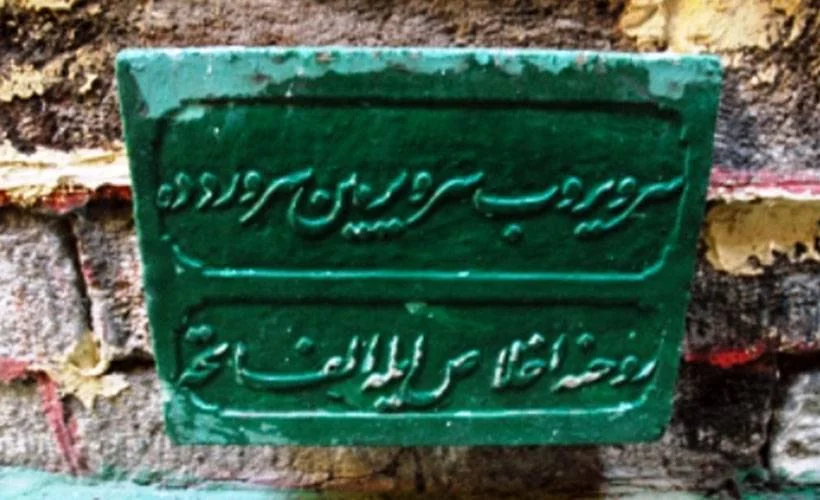 سر ویروب سر ویرمین سرور دده
روحنه اخلاص ایله الفاتحه